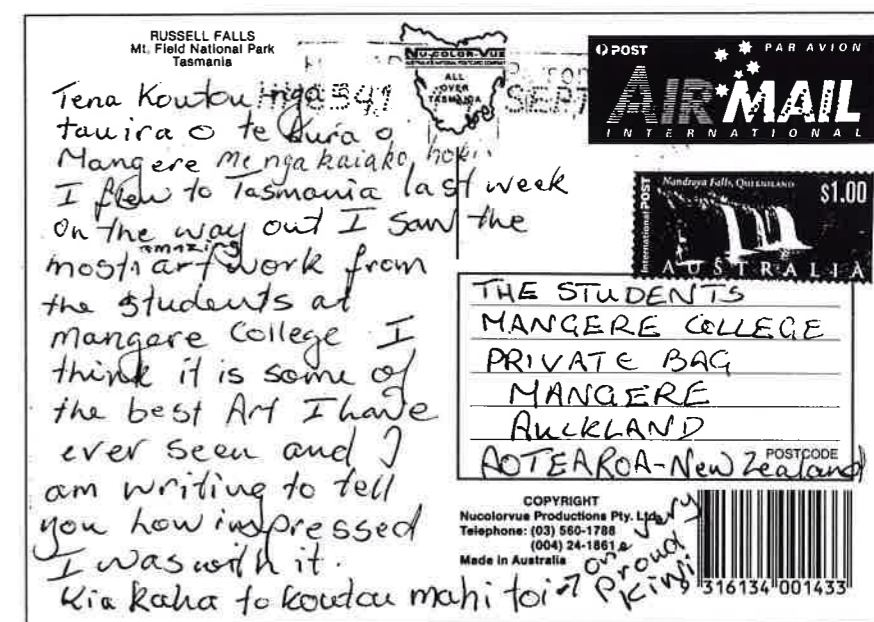 RUSSELL FALLS
Mt. Field National Park
Tasmania
NU-COLOR-VUE
ALL
OVER
TASMANIA
SEPT
POST
PAR AVION
AIR MAIL
INTERNATIONAL
Nandroya Falls, QUEENSLAND
$1.00
International POST
AUSTRALIA
Tena Koutou nga
tauira o te Kura o
Mangere me nga kaiako hoki
I flew to Tasmania last week
On the way out I saw the
most amazing art work from
the students at
Mangere College I
think it is some of
the best Art I have
ever seen and I
am writing to tell
you how impressed
I was with it.
Kia Kaha to koutou mahi toi
one very
Proud
Kiwi
THE STUDENTS
MANGERE COLLEGE
PRIVATE BAG
MANGERE
AUCKLAND
POSTCODE
AOTEAROA-New Zealand
COPYRIGHT
Nucolorvue Productions Pty. Ltd.
Telephone: (03) 560-1788
(004) 24-1861
Made in Australia
9 316134 001433